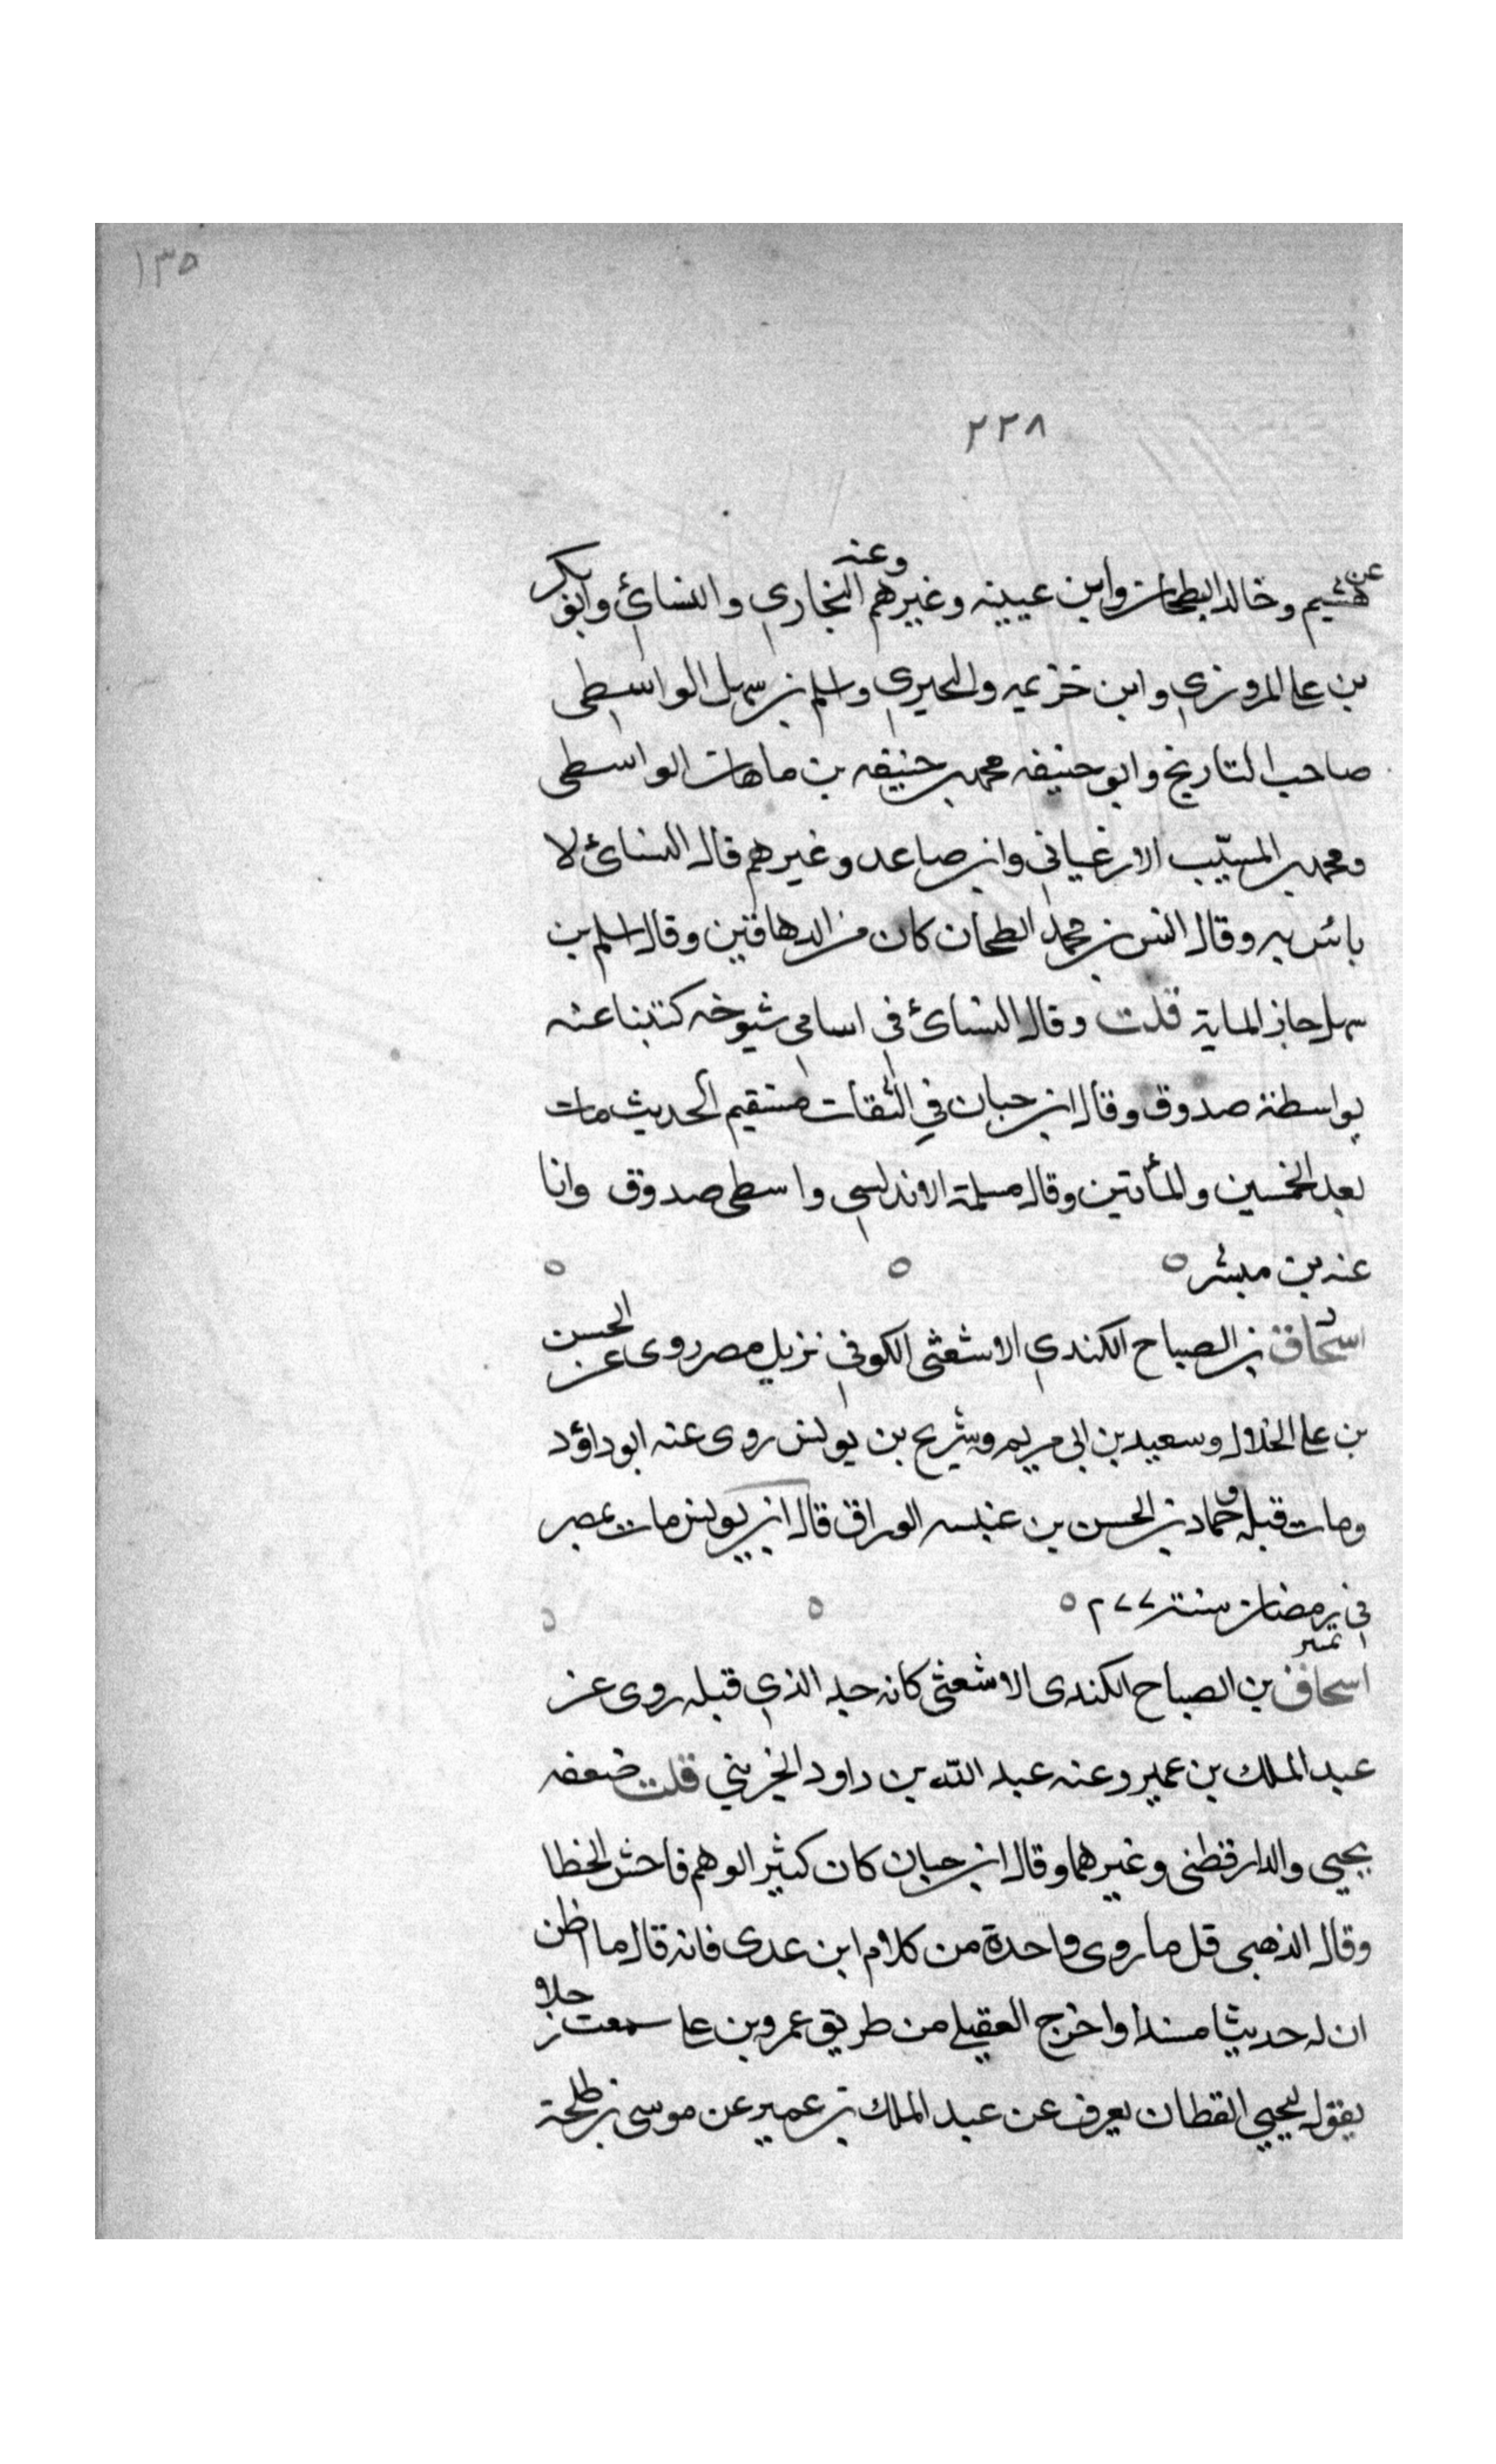 ١٣٥
٢٢٨
عن هشيم وخالد الطحان وابن عيينه وغيرهم وعنه البخاري والنسائي وابو بكر
بن علي المروزي وابن خزيمه والبحيري واسلم بن سهل الواسطي
صاحب التاريخ وابو حنيفه محمد بن حنيفه بن ماهان الواسطى
ومحمد بن المسيّب الارغياني وابن صاعد وغيرهم قال النسائي لا
بائس به وقال انس بن محمد الطحان كان من الدهاقين وقال اسلم بن
سهل جاز الماية قلت وقال النسائي في اسامي شيوخه كتبنا عنه
بواسطة صدوق وقال ابن حبان في الثقات مستقيم الحديث مات
بعد الخمسين والمأتين وقال مسلمة الاندلسي واسطى صدوق وانا
عنه بن مبشر ه ه ه
اسحاق بن الصباح الكندي الاشعثى الكوفي نزيل مصر روى عن الحسن
بن علي الخلال وسعيد بن ابي مريم وشريح بن يونس روى عنه ابو داؤد
ومات قبله وحماد بن الحسن بن عنبسه الوراق قال ابن يونس مات بمصر
في رمضان سنة ٢٧٧ ه ه ه
تمييز
اسحاق بن الصباح الكندى الاشعثى كانه جد الذي قبله روى عن
عبد الملك بن عمير وعنه عبد الله بن داود الخريبي قلت ضعفه
يحيى والدارقطنى وغيرهما وقال ابن حبان كان كثير الوهم فاحش الخطا
وقال الذهبى قل ما روى واحدة من كلام ابن عدى فانه قال ما اظن
ان له حديثا مسندا واخرج العقيلي من طريق عمرو بن علي سمعت رجلا
يقول ليحيى القطان يعرف عن عبد الملك بن عمير عن موسى بن طلحة